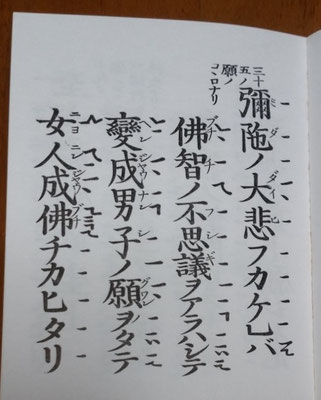 三十
五ノ
願ノ
コヽロナリ
彌陁ノ大悲フカケレバ
佛智ノ不思議ヲアラハシテ
變成男子ノ願ヲタテ
女人成佛チカヒタリ